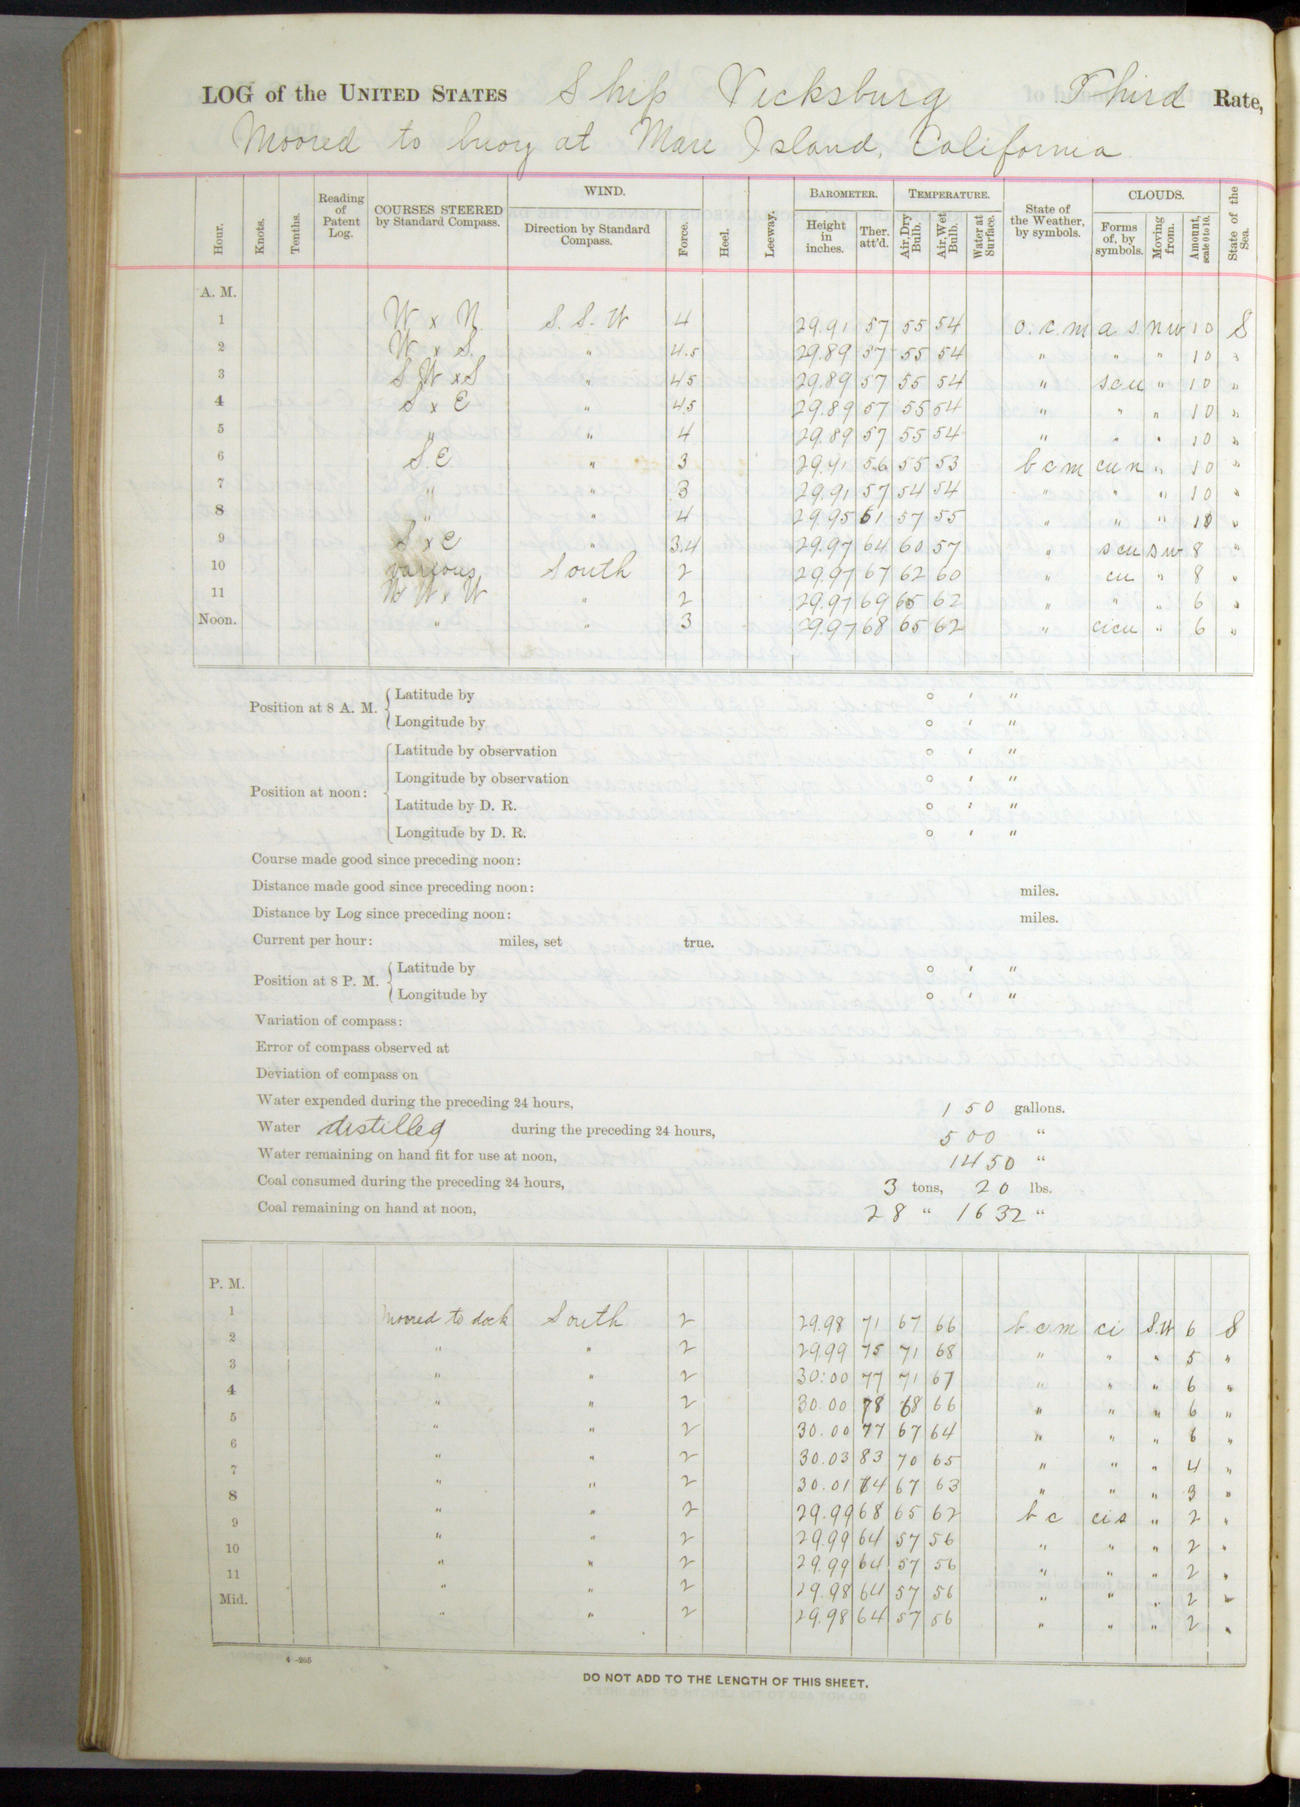 LOG of the UNITED STATES Ship Vicksburg Third Rate,
Moored to buoy at Mare Island, California
Hour. Knots. Tenths. Reading of Patent Log. COURSES STEERED by Standard Compass. WIND. Direction by Standard Compass. Force. Heel. Leeway. BAROMETER. Height in inches. Ther. att'd. TEMPERATURE. Air, Dry Bulb. Air, Wet Bulb. Water at Surface. State of the Weather, by symbols. CLOUDS. Forms of, by symbols. Moving from. Amount, scale 0 to 10. State of the Sea.
A. M.
1 W x N. S. S. W 4 29.91 57 55 54 o. c. m a s n w 10 S
2 W x S. " 4.5 29.89 57 55 54 " " " 10 "
3 S W x S " 4.5 29.89 57 55 54 " s cu " 10 "
4 S x E " 4.5 29.89 57 55 54 " " " 10 "
5 " " 4 29.89 57 55 54 " " " 10 "
6 S. E. " 3 29.91 56 55 53 b c m cu n " 10 "
7 " " 3 29.91 57 54 54 " " " 10 "
8 " " 4 29.95 61 57 55 " " " 10 "
9 S x E " 3.4 29.97 64 60 57 " s cu S W 8 "
10 various South 2 29.97 67 62 60 " cu " 8 "
11 N W x W " 2 29.97 69 65 62 " " " 6 "
Noon. " " 3 29.97 68 65 62 " ci cu " 6 "
Position at 8 A. M. Latitude by ° ' "
Longitude by ° ' "
Position at noon: Latitude by observation ° ' "
Longitude by observation ° ' "
Latitude by D. R. ° ' "
Longitude by D. R. ° ' "
Course made good since preceding noon:
Distance made good since preceding noon: miles.
Distance by Log since preceding noon: miles.
Current per hour: miles, set true.
Position at 8 P. M. Latitude by ° ' "
Longitude by ° ' "
Variation of compass:
Error of compass observed at
Deviation of compass on
Water expended during the preceding 24 hours, 150 gallons.
Water distilled during the preceding 24 hours, 500 "
Water remaining on hand fit for use at noon, 1450 "
Coal consumed during the preceding 24 hours, 3 tons, 20 lbs.
Coal remaining on hand at noon, 28 " 1632 "
P. M.
1 Moored to dock South 2 29.98 71 67 66 b c m ci S.W 6 S
2 " " 2 29.99 75 71 68 " " " 5 "
3 " " 2 30:00 77 71 67 " " " 6 "
4 " " 2 30.00 78 68 66 " " " 6 "
5 " " 2 30.00 77 67 64 " " " 6 "
6 " " 2 30.03 83 70 65 " " " 4 "
7 " " 2 30.01 74 67 63 " " " 3 "
8 " " 2 29.99 68 65 62 b c ci s " 2 "
9 " " 2 29.99 64 57 56 " " " 2 "
10 " " 2 29.99 64 57 56 " " " 2 "
11 " " 2 29.98 64 57 56 " " " 2 "
Mid. " " 2 29.98 64 57 56 " " " 2 "
4-205
DO NOT ADD TO THE LENGTH OF THIS SHEET.